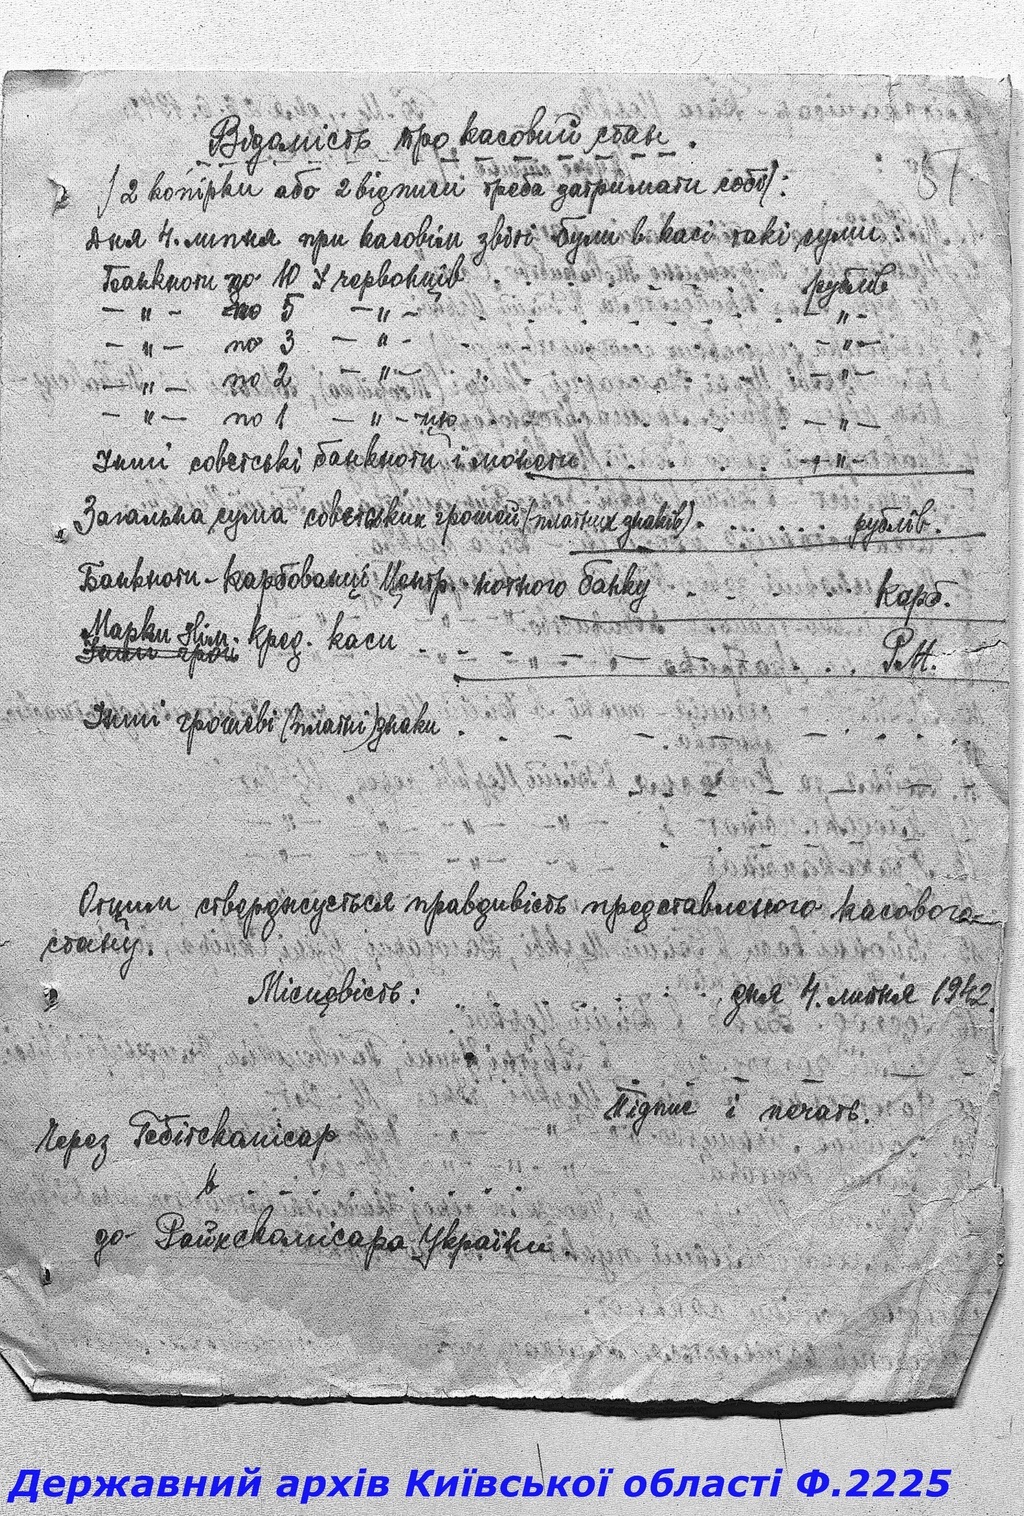 Відомість про касовий стан.
57
/2 копірки або 2 відписи треба затримати собі/:
Дня 4. липня при касовім звіті були в касі такі суми
Банкноти по 10 І червонців . . . рублів
— „ — по 5 — „ — . . . . . . — „ —
— „ — по 3 — „ — — „ —
— „ — по 2 — „ — — „ —
— „ — по 1 — „ — цю — „ —
Інші совєтські банкноти і монети . . . — „ —
Загальна сума совєтських грошей (платних знаків) . . . . . рублів.
Банкноти - карбованці Центр. нотного банку карб.
Марки Нім. кред. каси . . . . . Р.М.
Інші грошеві (платні) знаки . . . . .
Оцим стверджується правдивість представленого касового
стану.
Місцевість: дня 4. липня 1942.
Підпис і печать.
Через Гебітскомісар
в
до Райхскомісара України
Державний архів Київської області Ф.2225